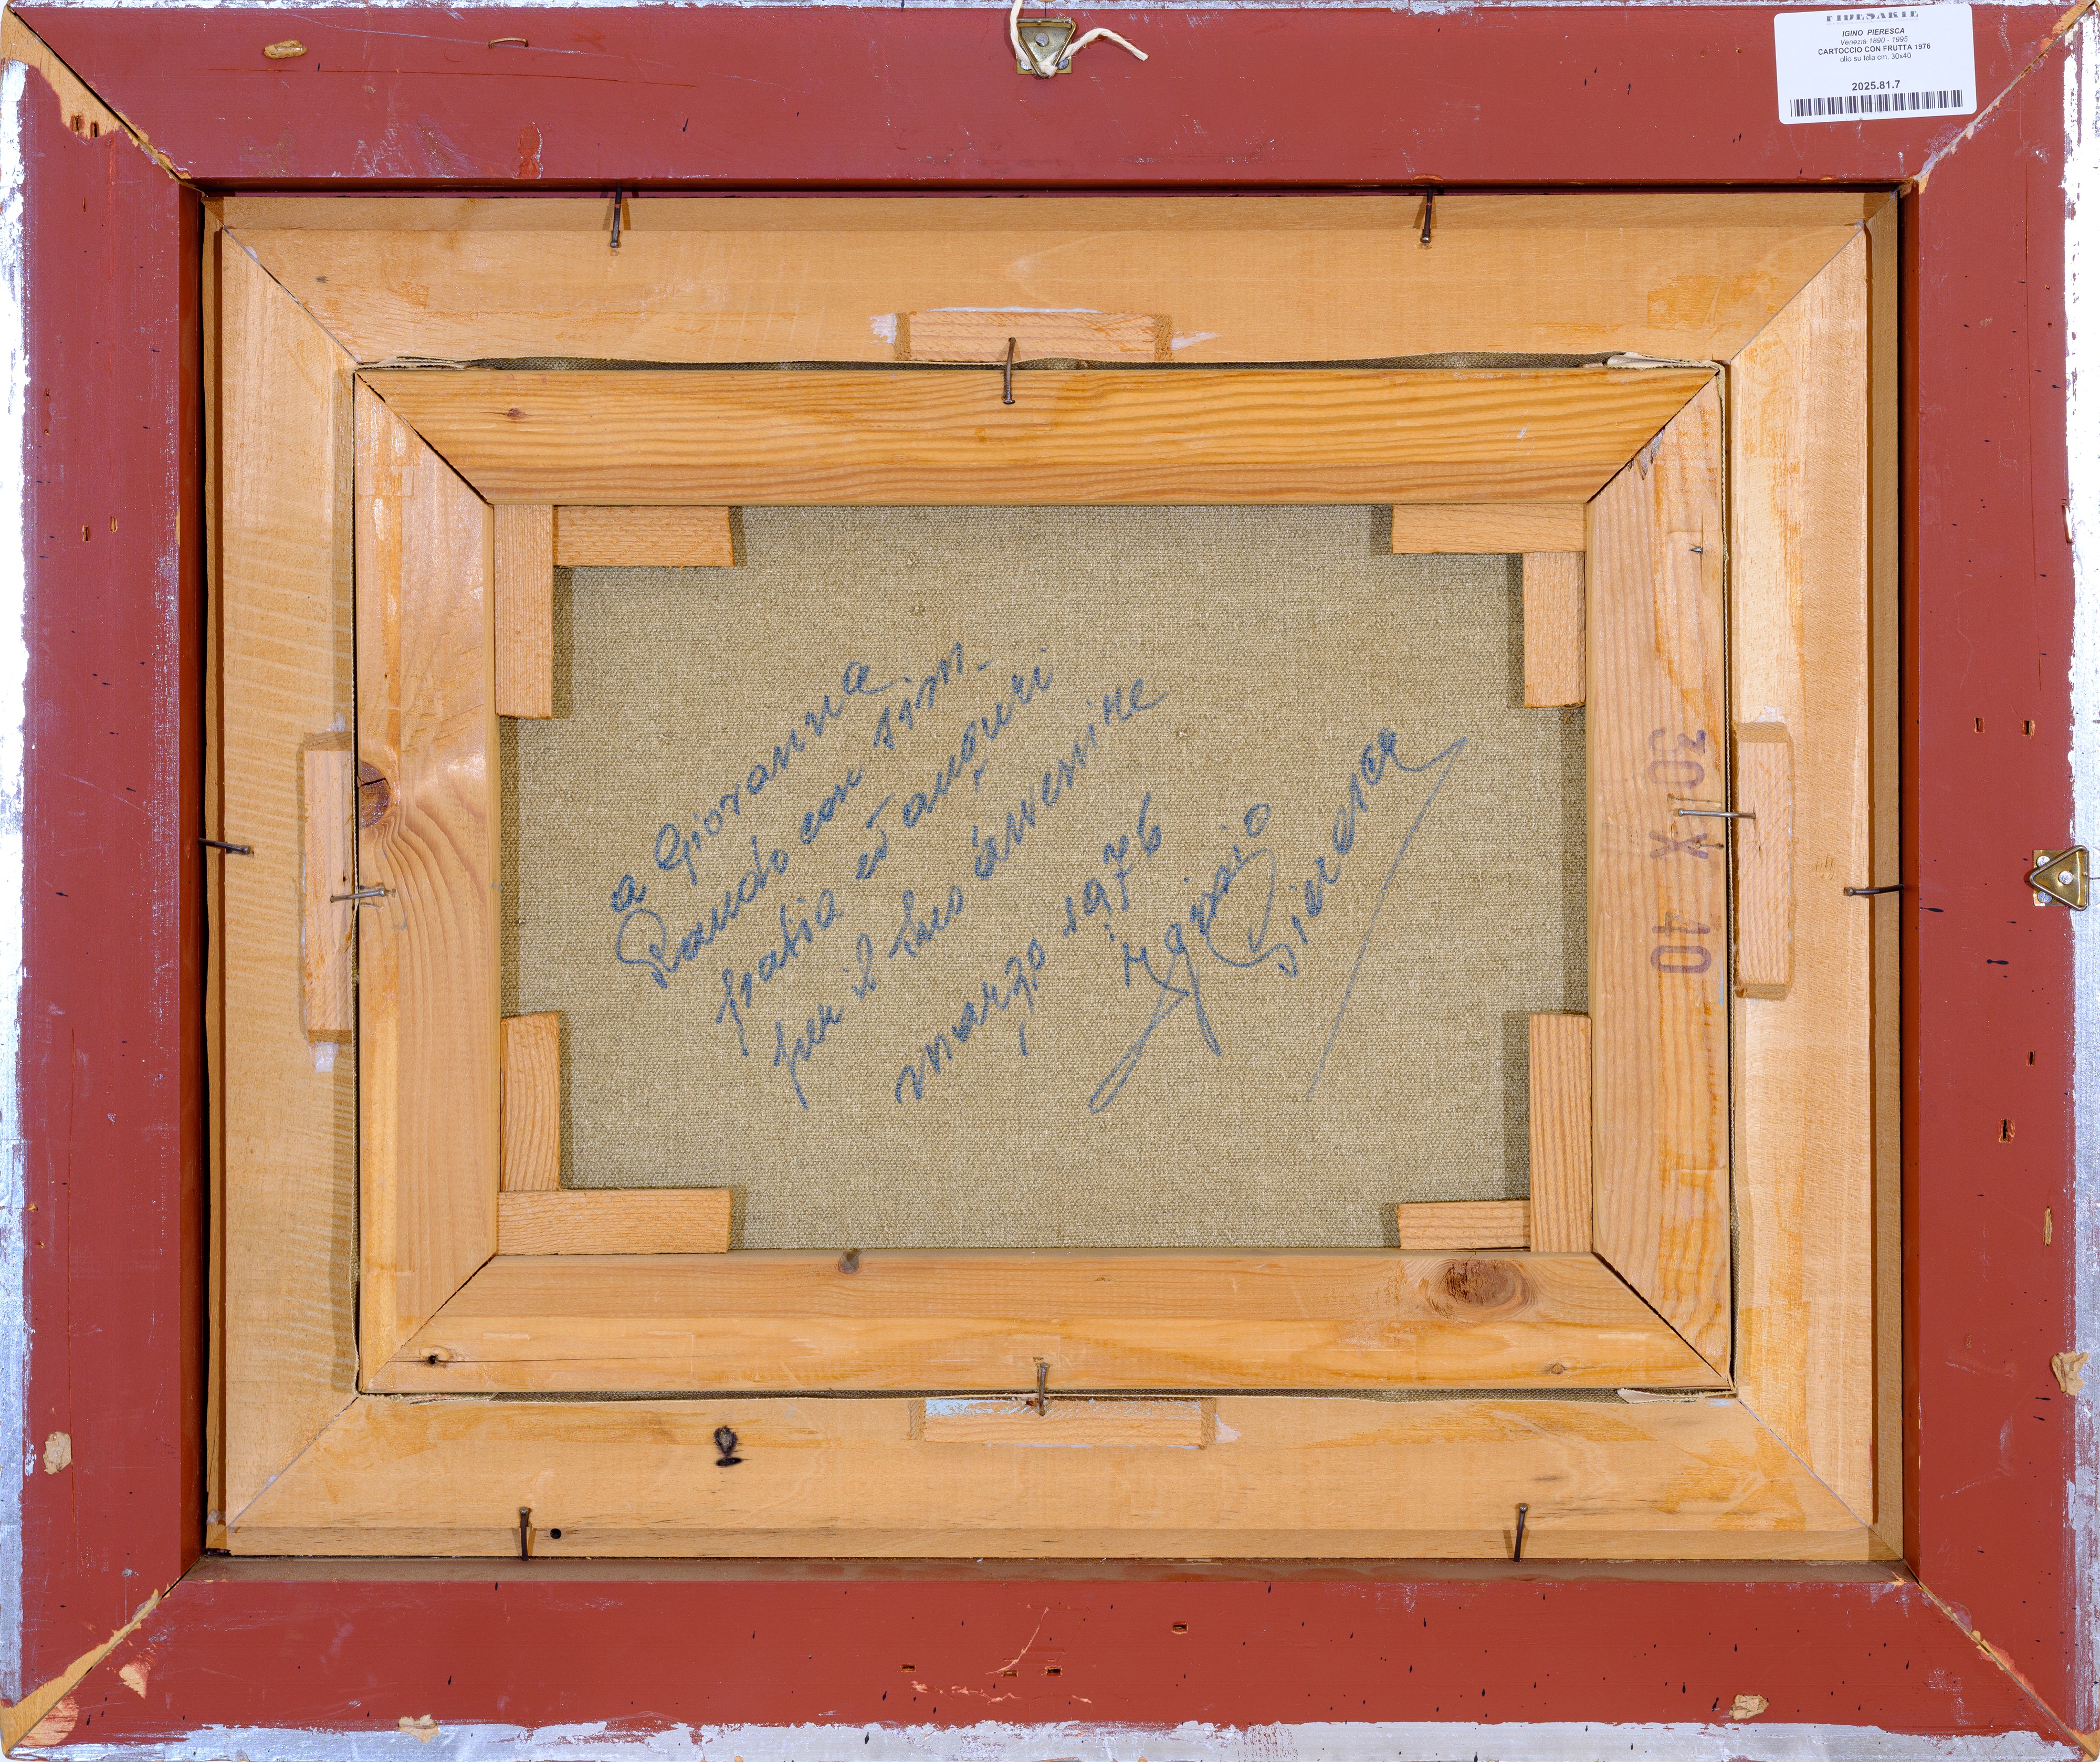 FIDESARTE
IGINO PIERESCA
Venezia 1890 - 1995
CARTOCCIO CON FRUTTA 1976
olio su tela cm. 30x40
2025.81.7
a Giovanna
Rando con sim-
patia ed auguri
per il suo avvenire
marzo 1976
igino
Pieresca
30 X 40